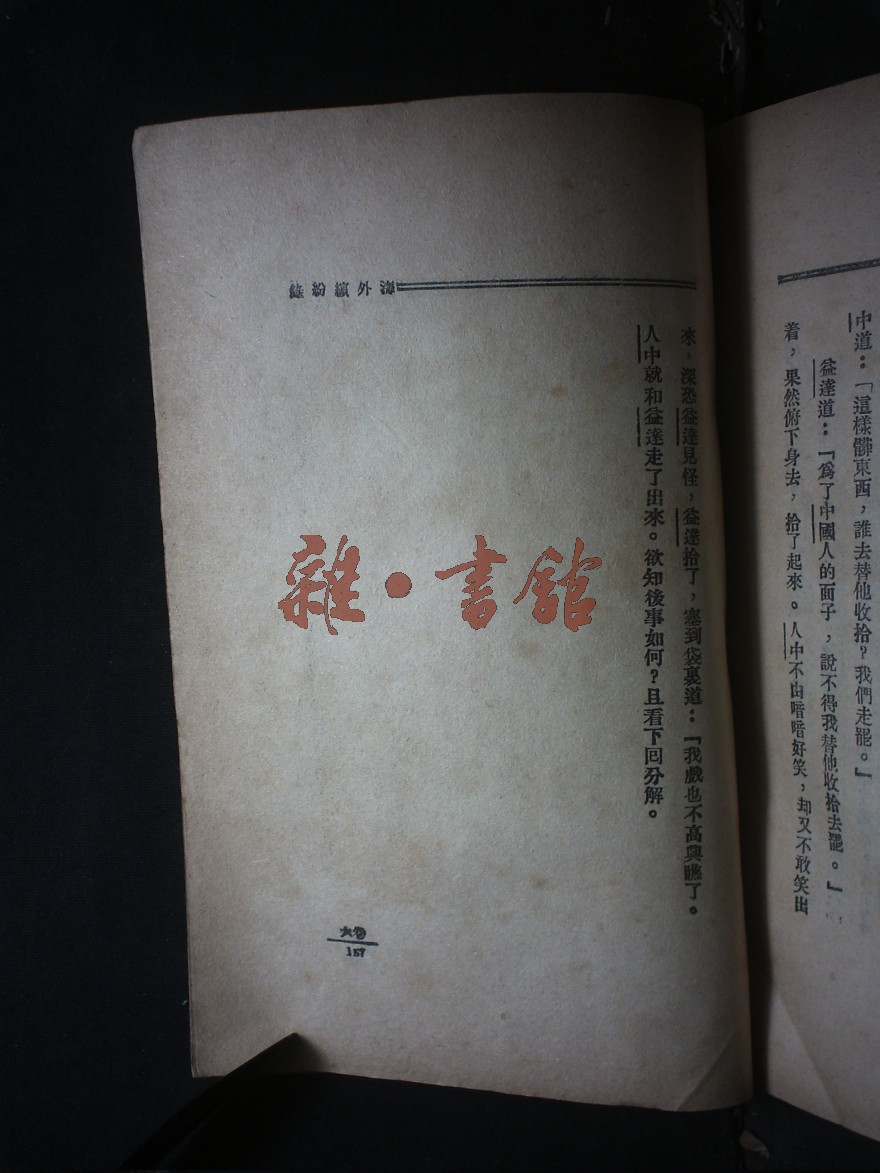 中道：「這樣髒東西，誰去替他收拾？我們走罷。」
益達道：「爲了中國人的面子，說不得我替他收拾去罷。」
着，果然俯下身去，拾了起來。人中不由暗暗好笑，却又不敢笑出
海外繽紛錄
來，深恐益達見怪，益達拾了，塞到袋裏道：「我戲也不高興瞧了。
人中就和益達走了出來。欲知後事如何？且看下回分解。
雜·書館
157